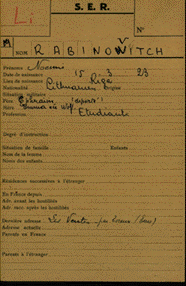 Li
S. E. R.
N°
NOM RABINOWITCH
Prénoms Noemi
Date de naissance 15 3 23
Lieu de naissance Riga
Nationalité Lithuanien Origine
Situation militaire
Père Ephraim, "déporté"
Mère
Profession Etudiante
Degré d'instruction
Situation de famille Enfants
Nom de la femme
Noms des enfants
Résidences successives à l'étranger
En France depuis
Adr. avant les hostilités
Adr. succ. après les hostilités
Dernière adresse Les
Adresse actuelle
Parents en France
Parents à l'étranger